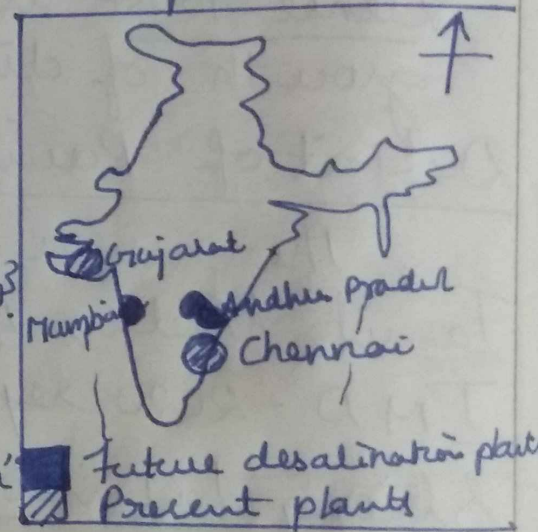 Gujarat
Mumbai
Andhra Pradesh
Chennai
Future desalination plant
Present plants